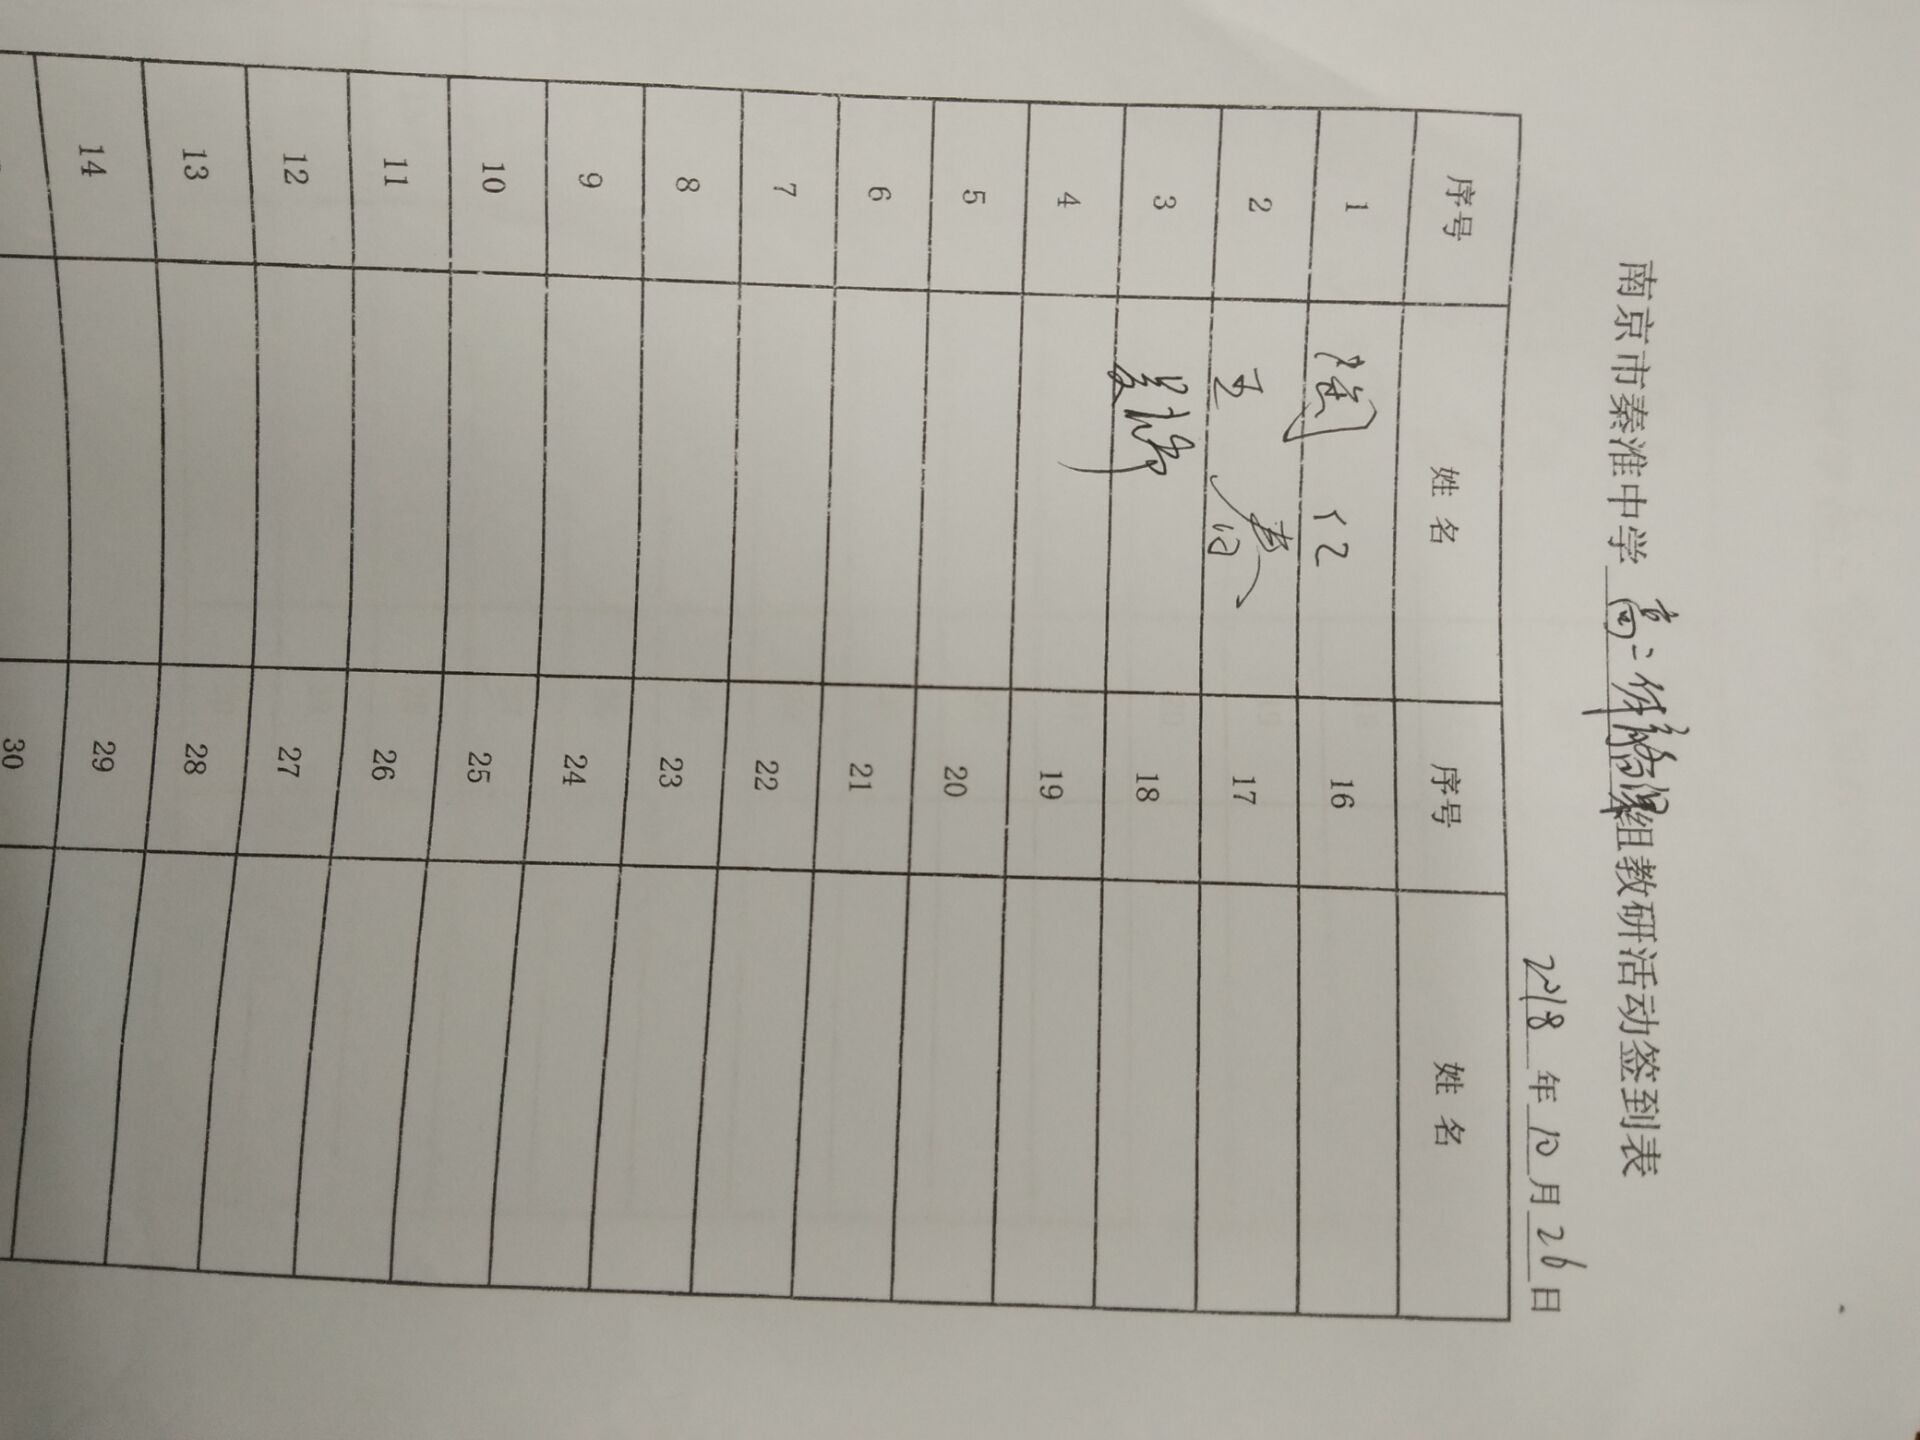 南京市秦淮中学高二备课组教研活动签到表
2018年10月26日
序号 姓名 序号 姓名
1 16
2 王春 17
3 18
4 19
5 20
6 21
7 22
8 23
9 24
10 25
11 26
12 27
13 28
14 29
30